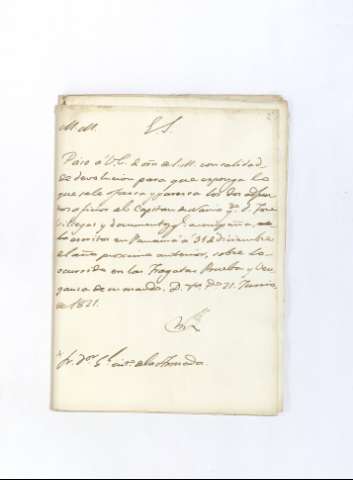 M. M. E. S.
Paso á V.E. de orn de S.M. con calidad
de devolucion para que exponga lo
que se le ofrezca y parezca los dos adjun
tos oficios del Capitan de Navio gdo. D. Jose
Villegas y documentos qe acompaña,
escritos en Panamá á 31 de diciembre
del año proximo anterior, sobre lo
ocurrido en las Fragatas Prueba y Ven
ganza de su mando. D. gue. Do 21. Junio
de 1821.
Sr. Dor Gl. de la Armada.